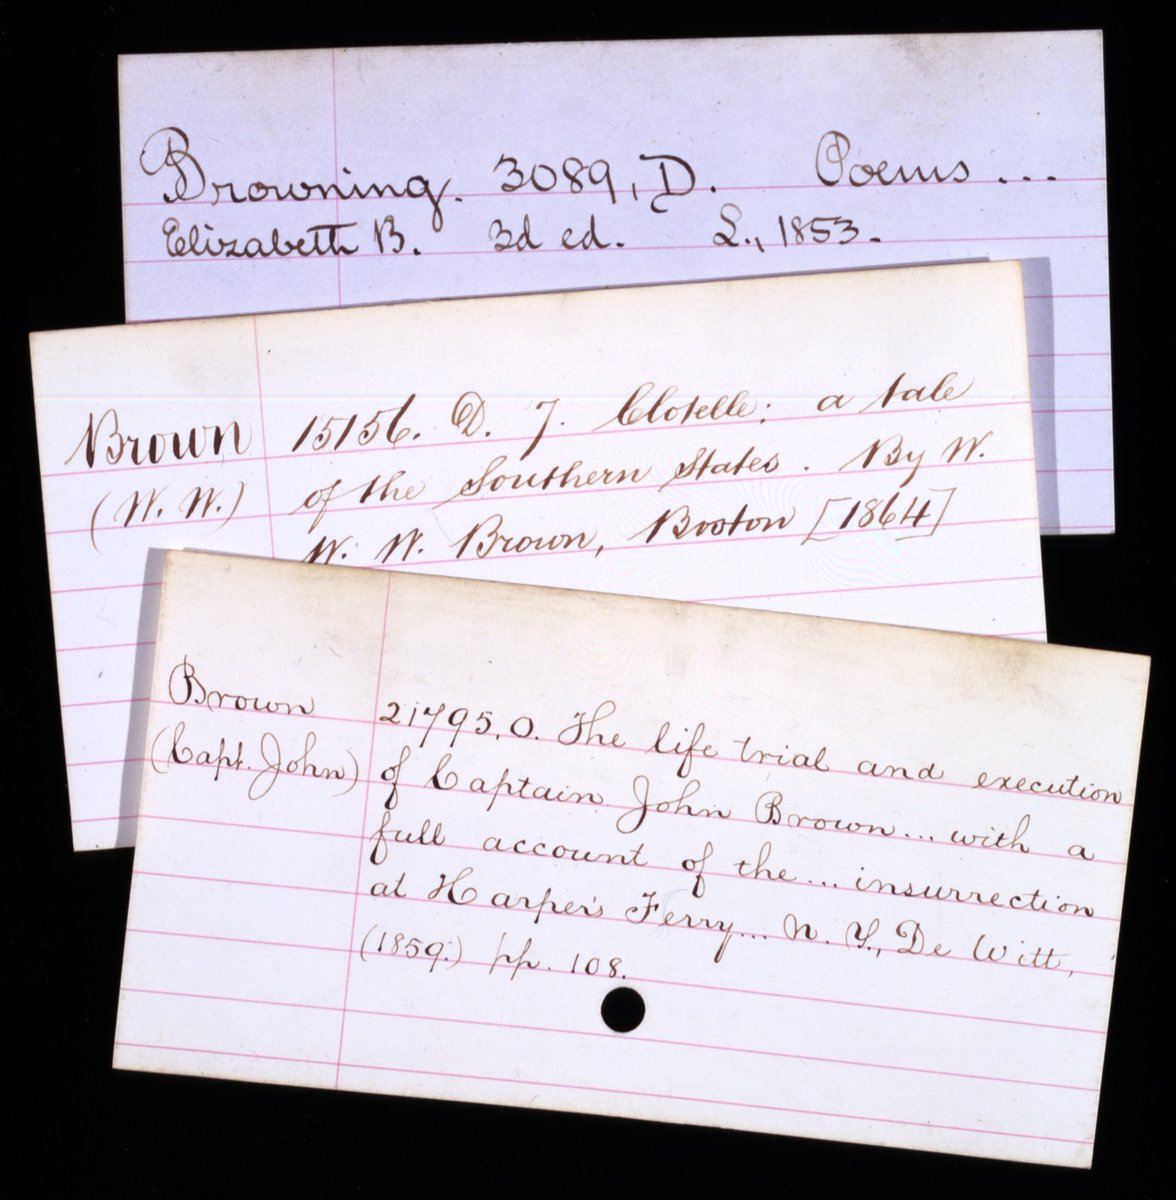 Browning. 3089, D. Poems ...
Elizabeth B. 3d ed. L., 1853.
Brown 15156. D. 7. Clotelle; a tale
(W. W.) of the Southern States. By W.
W. W. Brown, Boston [1864]
Brown 21795, O. The life trial and execution
(Capt. John) of Captain John Brown... with a
full account of the... insurrection
at Harper's Ferry... N. Y., De Witt,
(1859.) pp. 108.